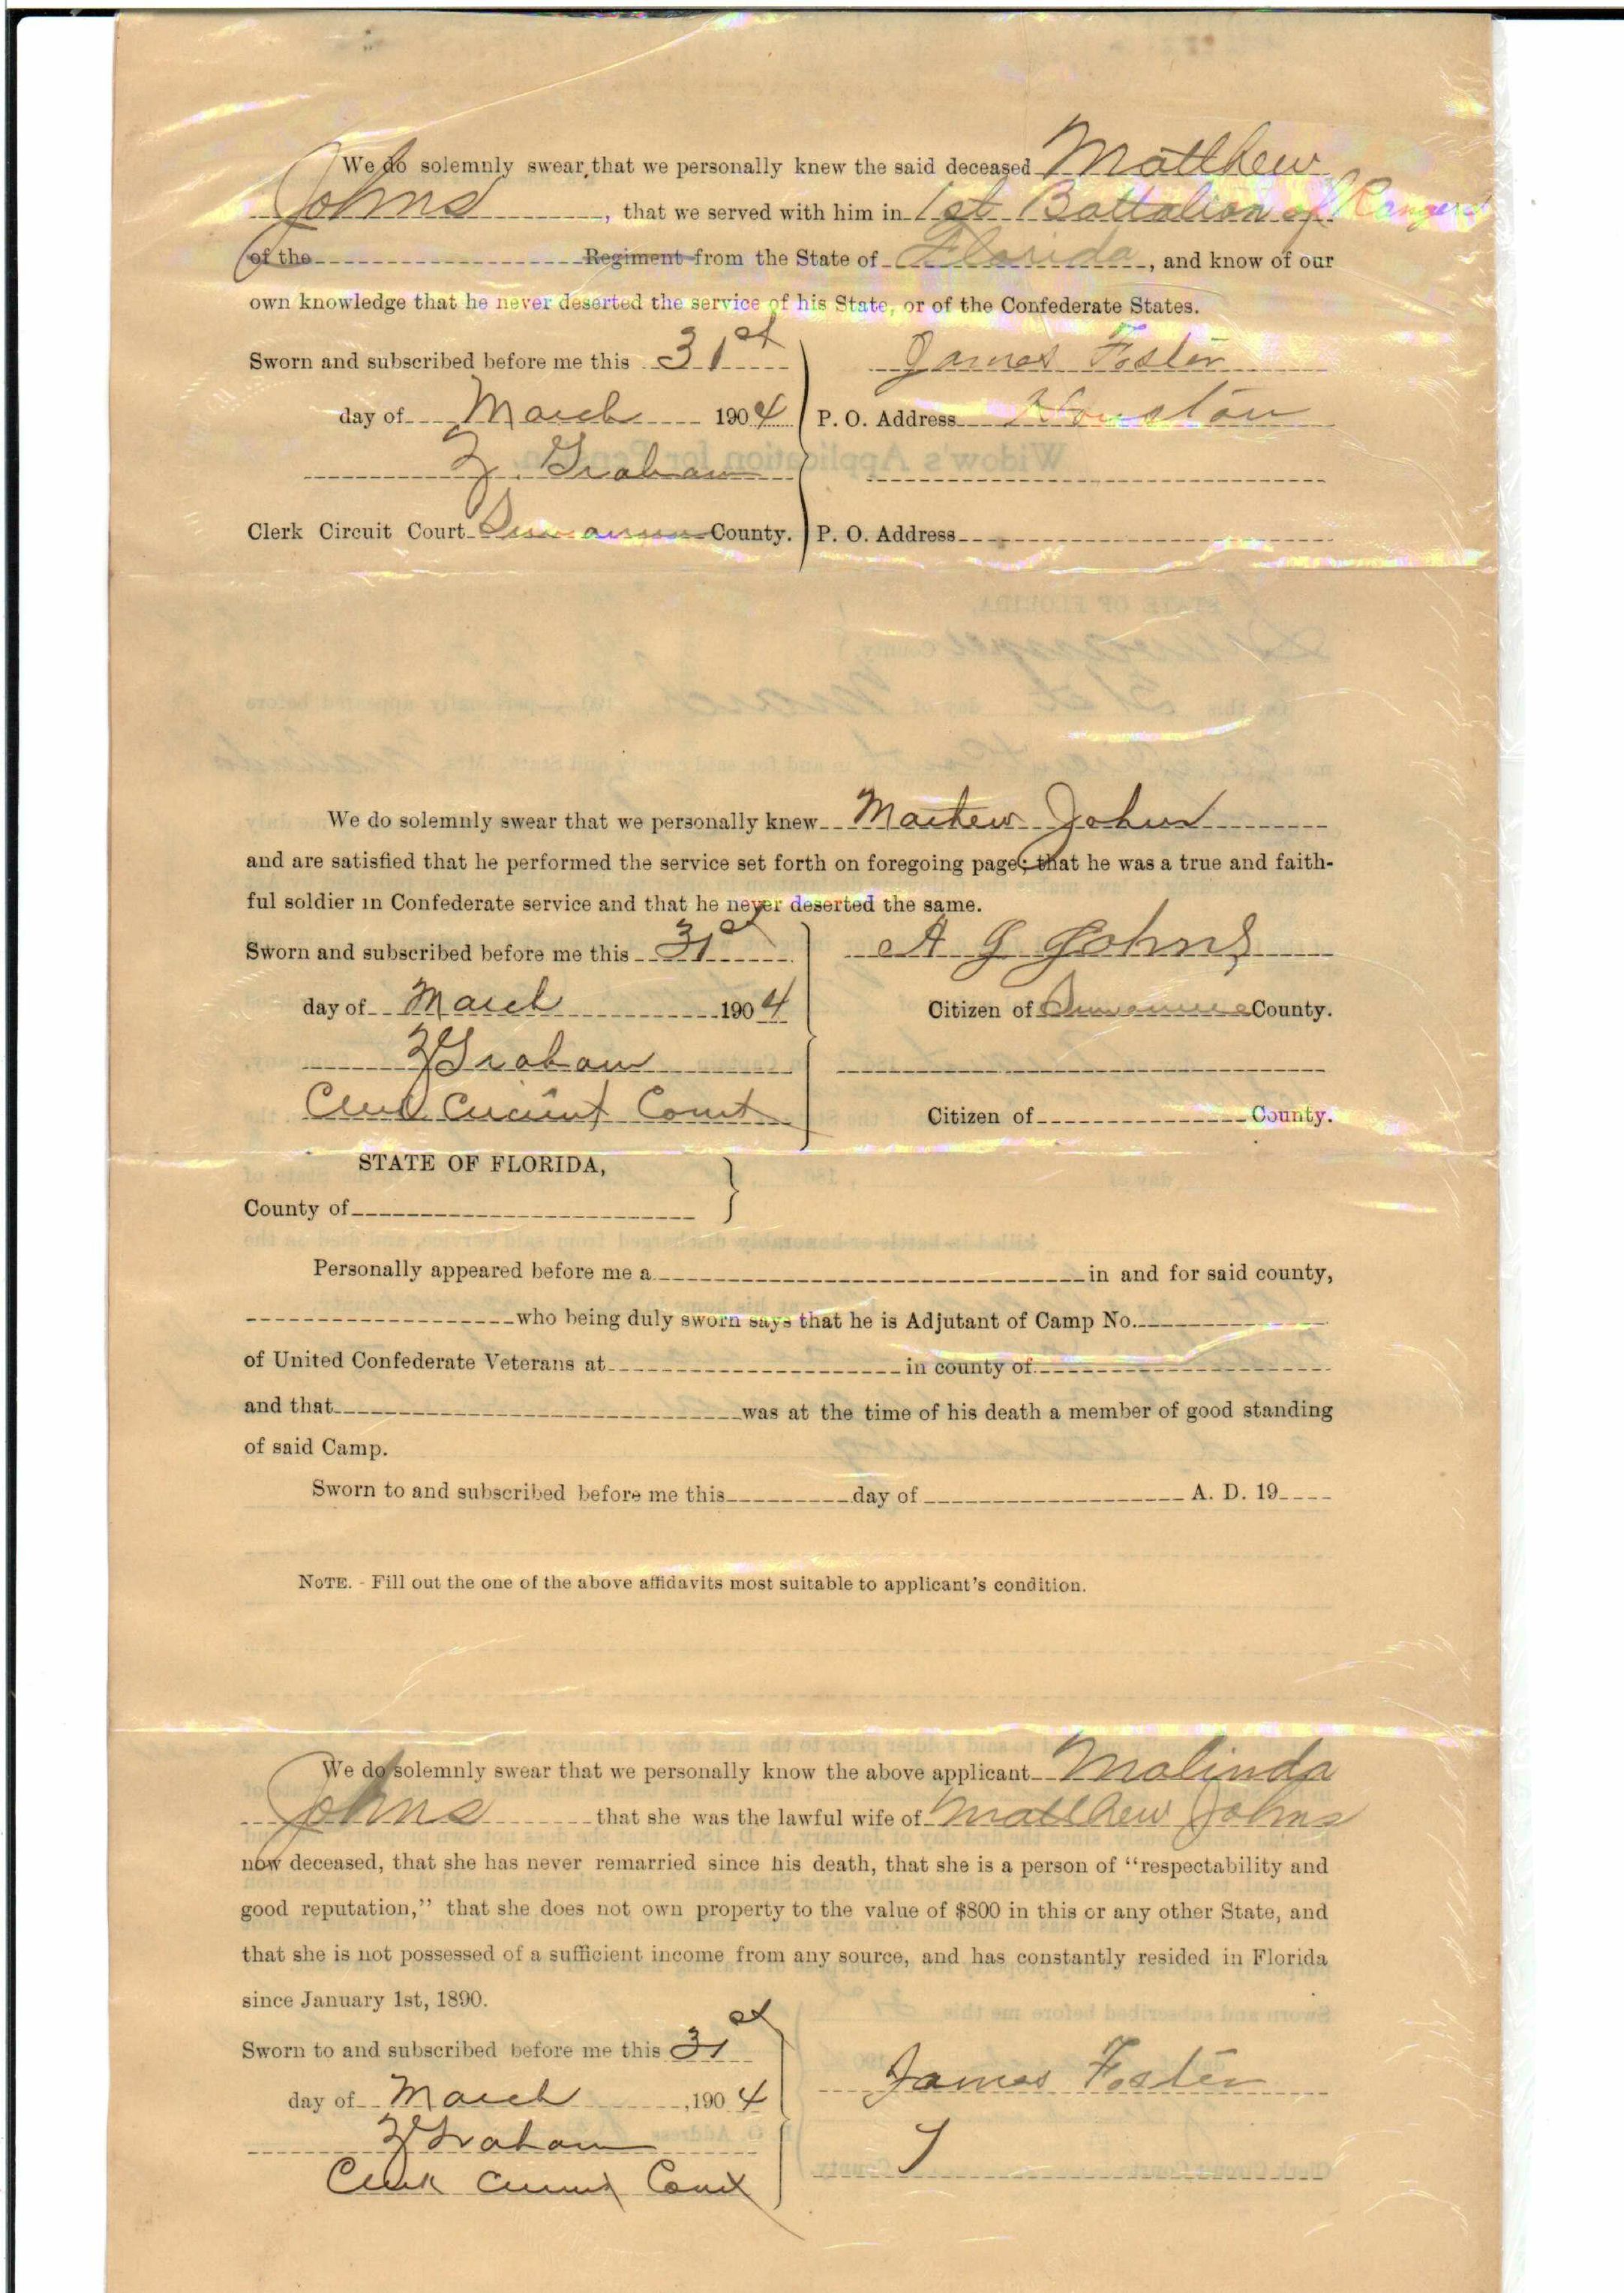 We do solemnly swear, that we personally knew the said deceased Matthew
Johns, that we served with him in 1st Battalion of Rangers
of the Regiment from the State of Florida, and know of our
own knowledge that he never deserted the service of his State, or of the Confederate States.
Sworn and subscribed before me this 31st
James Foster
day of March 1904
P. O. Address Houston
Z. Graham
Clerk Circuit Court Suwannee County.
P. O. Address
We do solemnly swear that we personally knew Mathew Johns
and are satisfied that he performed the service set forth on foregoing page; that he was a true and faith-
ful soldier in Confederate service and that he never deserted the same.
Sworn and subscribed before me this 31st
A G Johns
day of March 1904
Citizen of Suwannee County.
Z Graham
Clerk Circuit Court
Citizen of County.
STATE OF FLORIDA,
County of
Personally appeared before me a in and for said county,
who being duly sworn says that he is Adjutant of Camp No.
of United Confederate Veterans at in county of
and that was at the time of his death a member of good standing
of said Camp.
Sworn to and subscribed before me this day of A. D. 19
NOTE. - Fill out the one of the above affidavits most suitable to applicant's condition.
We do solemnly swear that we personally know the above applicant Malinda
Johns that she was the lawful wife of Matthew Johns
now deceased, that she has never remarried since his death, that she is a person of "respectability and
good reputation," that she does not own property to the value of $800 in this or any other State, and
that she is not possessed of a sufficient income from any source, and has constantly resided in Florida
since January 1st, 1890.
Sworn to and subscribed before me this 31st
James Foster
day of March, 1904
Z Graham
Clerk Circuit Court